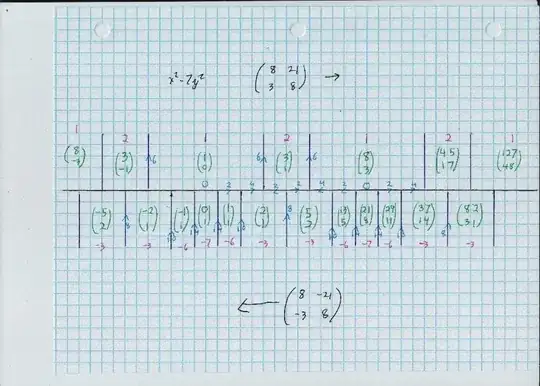 x²-7y² (8 21; 3 8) →
1 2 1 2 1 2 1
(8; -1) (3; -1) 6 (1; 0) 6 (3; 1) 6 (8; 3) (45; 17) (127; 48)
0 2 4 2 2 4 2 0 2 4
(-5; 2) 8 (-2; 1) (-1; 1) (0; 1) (1; 1) (2; 1) 8 (5; 2) (13; 5) (21; 8) (29; 11) (37; 14) 8 (82; 31)
-3 -3 -6 -7 -6 -3 -3 -6 -7 -6 -3 -3
← (8 -21; -3 8)